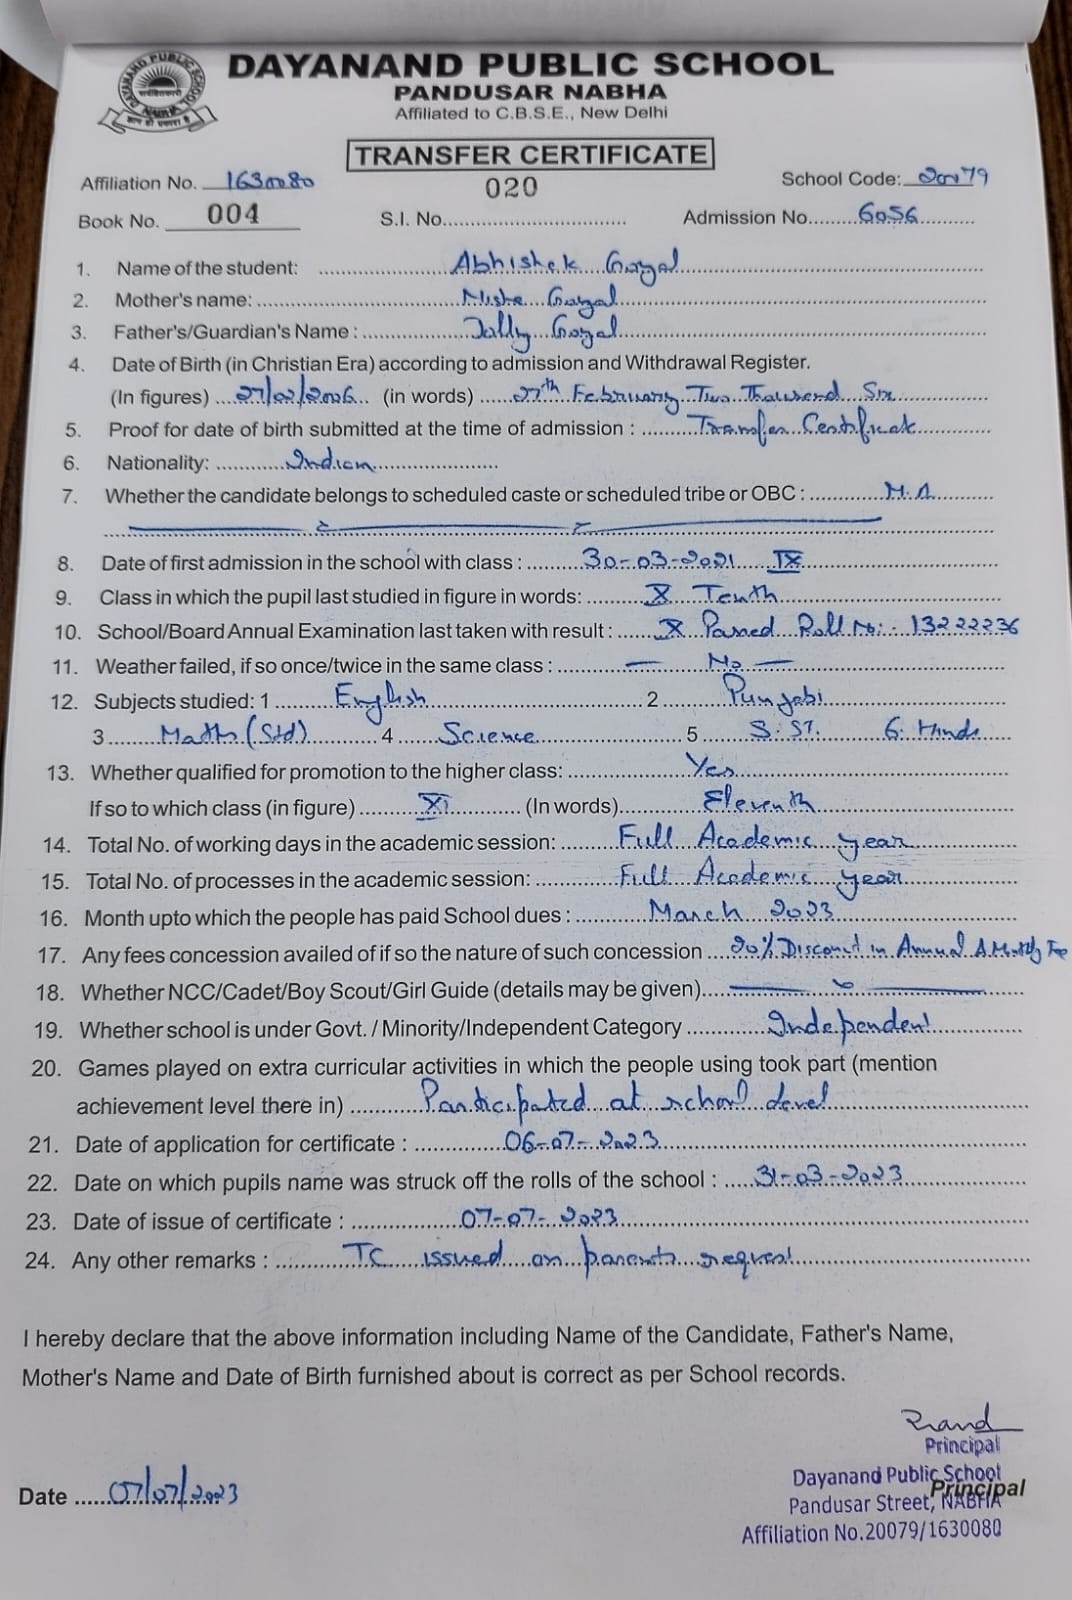 DAYANAND PUBLIC SCHOOL
PANDUSAR NABHA
Affiliated to C.B.S.E., New Delhi
DAYANAND PUBLIC SCHOOL
NABHA
TRANSFER CERTIFICATE
Affiliation No. 1630080 020 School Code: 20079
Book No. 004 S.I. No. Admission No. 6056
1. Name of the student: Abhishek Goyal
2. Mother's name: Nisha Goyal
3. Father's/Guardian's Name : Jolly Goyal
4. Date of Birth (in Christian Era) according to admission and Withdrawal Register.
(In figures) 27/02/2006 (in words) 27th February Two Thousand Six
5. Proof for date of birth submitted at the time of admission : Transfer Certificate
6. Nationality: Indian
7. Whether the candidate belongs to scheduled caste or scheduled tribe or OBC : N.A
8. Date of first admission in the school with class : 30-03-2021 IX
9. Class in which the pupil last studied in figure in words: X Tenth
10. School/Board Annual Examination last taken with result : X Passed Roll No: 13222236
11. Weather failed, if so once/twice in the same class : — No —
12. Subjects studied: 1 English 2 Punjabi
3 Maths (Std) 4 Science 5 S. ST. 6. Hindi
13. Whether qualified for promotion to the higher class: Yes
If so to which class (in figure) XI (In words) Eleventh
14. Total No. of working days in the academic session: Full Academic year
15. Total No. of processes in the academic session: Full Academic year
16. Month upto which the people has paid School dues : March 2023
17. Any fees concession availed of if so the nature of such concession 20% Discount in Annual & Monthly Fee
18. Whether NCC/Cadet/Boy Scout/Girl Guide (details may be given)
19. Whether school is under Govt. / Minority/Independent Category Independent
20. Games played on extra curricular activities in which the people using took part (mention
achievement level there in) Participated at school level
21. Date of application for certificate : 06-07-2023
22. Date on which pupils name was struck off the rolls of the school : 31-03-2023
23. Date of issue of certificate : 07-07-2023
24. Any other remarks : TC issued on parents request
I hereby declare that the above information including Name of the Candidate, Father's Name,
Mother's Name and Date of Birth furnished about is correct as per School records.
Principal
Dayanand Public School
Date 07/07/2023 Principal
Pandusar Street, NABHA
Affiliation No.20079/1630080